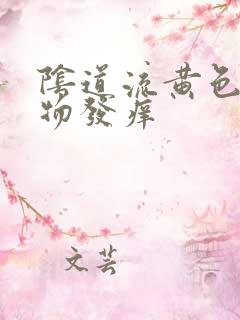 陰道流黄色
物發痒
文芸